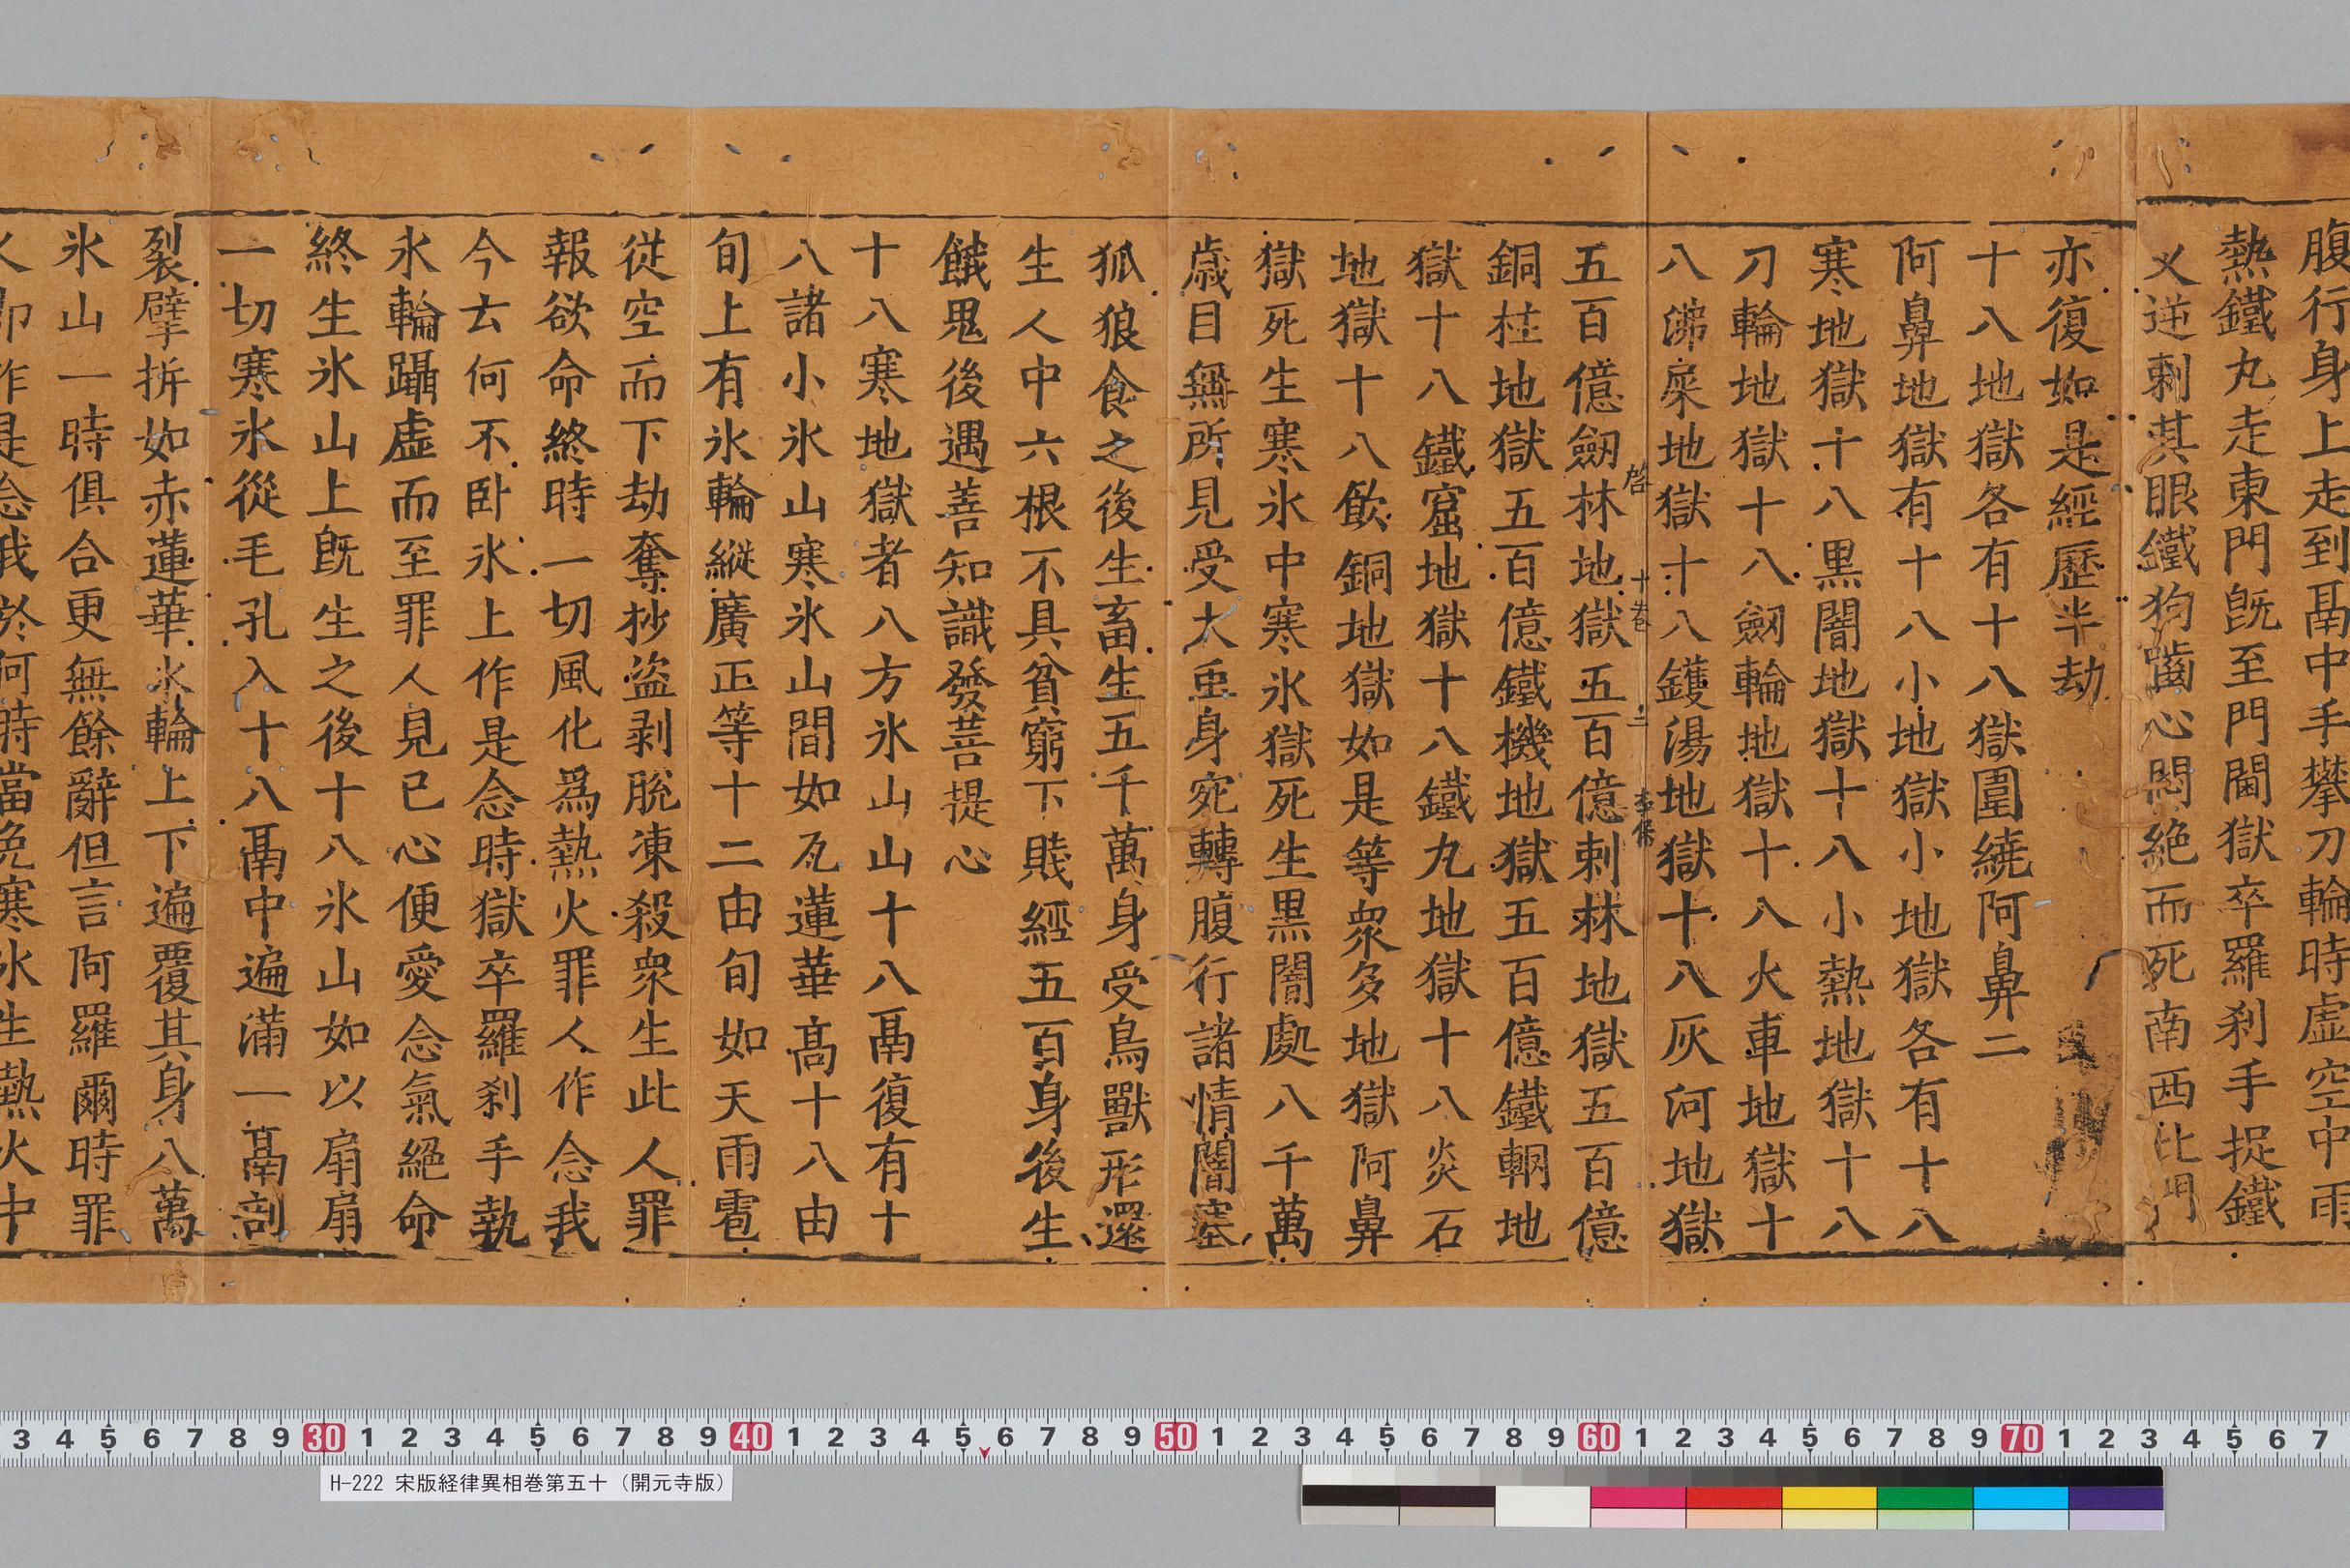 腹行身上走到鬲中手攀刀輪時虛空中雨
熱鐵丸走東門旣至門閫獄卒羅刹手捉鐵
义逆剌其眼鐵狗齧心悶絕而死南西北門
亦復如是經歷半劫
十八地獄各有十八獄圍繞阿鼻二
阿鼻地獄有十八小地獄小地獄各有十八
寒地獄十八黑闇地獄十八小熱地獄十八
刀輪地獄十八劒輪地獄十八火車地獄十
八沸屎地獄十八鑊湯地獄十八灰河地獄
五百億劒林地獄五百億剌林地獄五百億
銅柱地獄五百億鐵機地獄五百億鐵輞地
獄十八鐵窟地獄十八鐵丸地獄十八炎石
地獄十八飲銅地獄如是等衆多地獄阿鼻
獄死生寒氷中寒氷獄死生黑闇處八千萬
歲目無所見受大䖝身宛轉腹行諸情闇塞
狐狼食之後生畜生五千萬身受鳥獸形還
生人中六根不具貧窮下賤經五百身後生
餓鬼後遇善知識發菩提心
十八寒地獄者八方氷山山十八鬲復有十
八諸小氷山寒氷山間如瓦蓮華高十八由
旬上有氷輪縱廣正等十二由旬如天雨雹
從空而下劫奪抄盜剥脫凍殺衆生此人罪
報欲命終時一切風化爲熱火罪人作念我
今去何不卧氷上作是念時獄卒羅刹手執
氷輪躡虛而至罪人見已心便愛念氣絕命
終生氷山上旣生之後十八氷山如以扇扇
一切寒氷從毛孔入十八鬲中遍滿一鬲剖
裂擘拆如赤蓮華氷輪上下遍覆其身八萬
氷山一時俱合更無餘辭但言阿羅爾時罪
人即作是念我於何時當免寒氷生熱火中
十卷
H-222 宋版経律異相巻第五十（開元寺版）